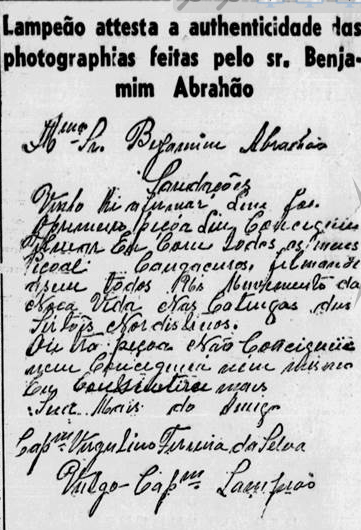 Lampeão attesta a authenticidade das
photographias feitas pelo sr. Benja-
mim Abrahão
Illmo Sr. Bejamim Abrahão
Saudações
Venho lhi afirmar que foi
a primeira peçoa que conceguiu
filmar Eu com todos os meus
peçoal Cangaceiros, filmando
assim todos os muvimento da
noça vida nas Catingas dus
Sertõis Nordistinos.
Outra peçoa não conciguiu
nem conciguirá nem mesmo
Eu consintirei mais
Sem mais do amigo
Capm Virgulino Ferreira da Silva
Vulgo Capm Lampião